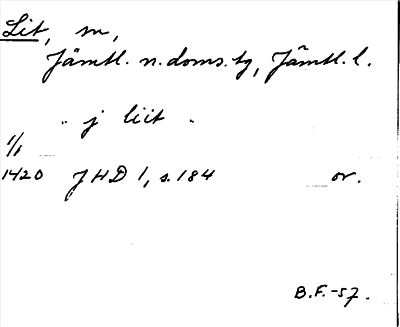 Lit, sn,
Jämtl. n. doms. tg, Jämtl. l.
" j liit "
1/1
1420 JHD 1, s. 184 or.
B.F.-57.